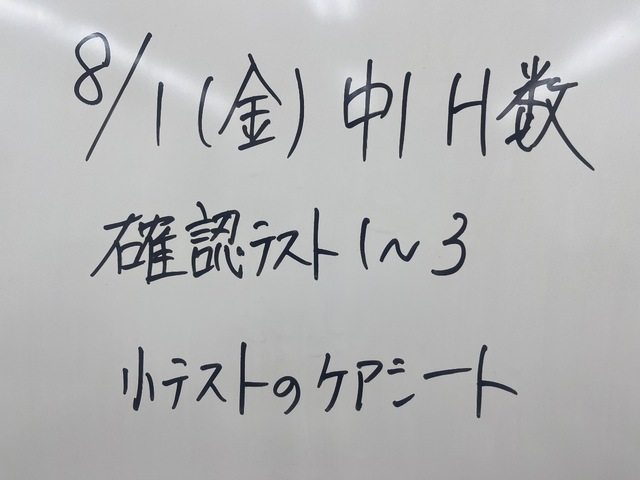 8/1(金) 中1 H数
確認テスト1~3
小テストのケアシート